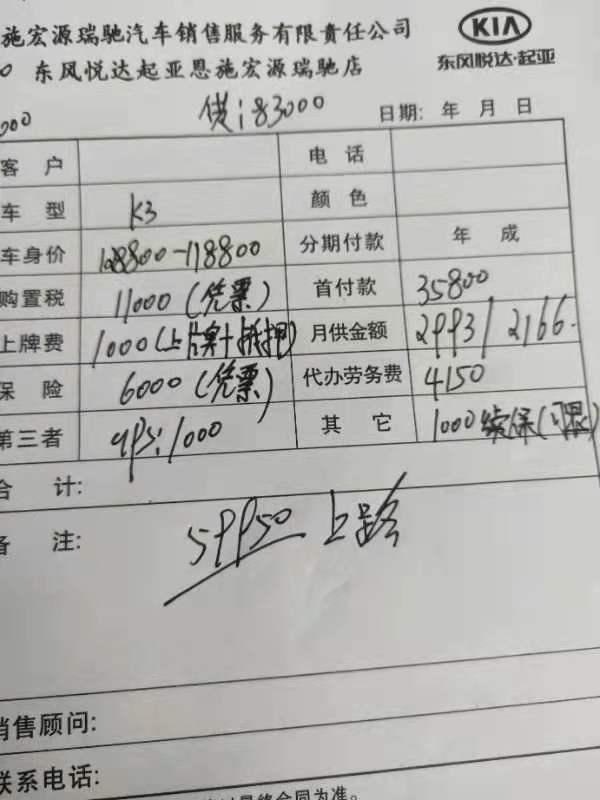 施宏源瑞驰汽车销售服务有限责任公司
KIA
东风悦达起亚恩施宏源瑞驰店
东风悦达·起亚
贷:83000
日期: 年 月 日
客 户 电 话
车 型 K3 颜 色
车身价 128800-118800 分期付款 年 成
购置税 11000(凭票) 首付款 35800
上牌费 1000(上牌+抵押) 月供金额 2993/2166.
保 险 6000(凭票) 代办劳务费 4150
第三者 gps:1000 其 它 1000续保(可退)
合 计:
备 注: 59950 上路
销售顾问:
联系电话:
合同为准。